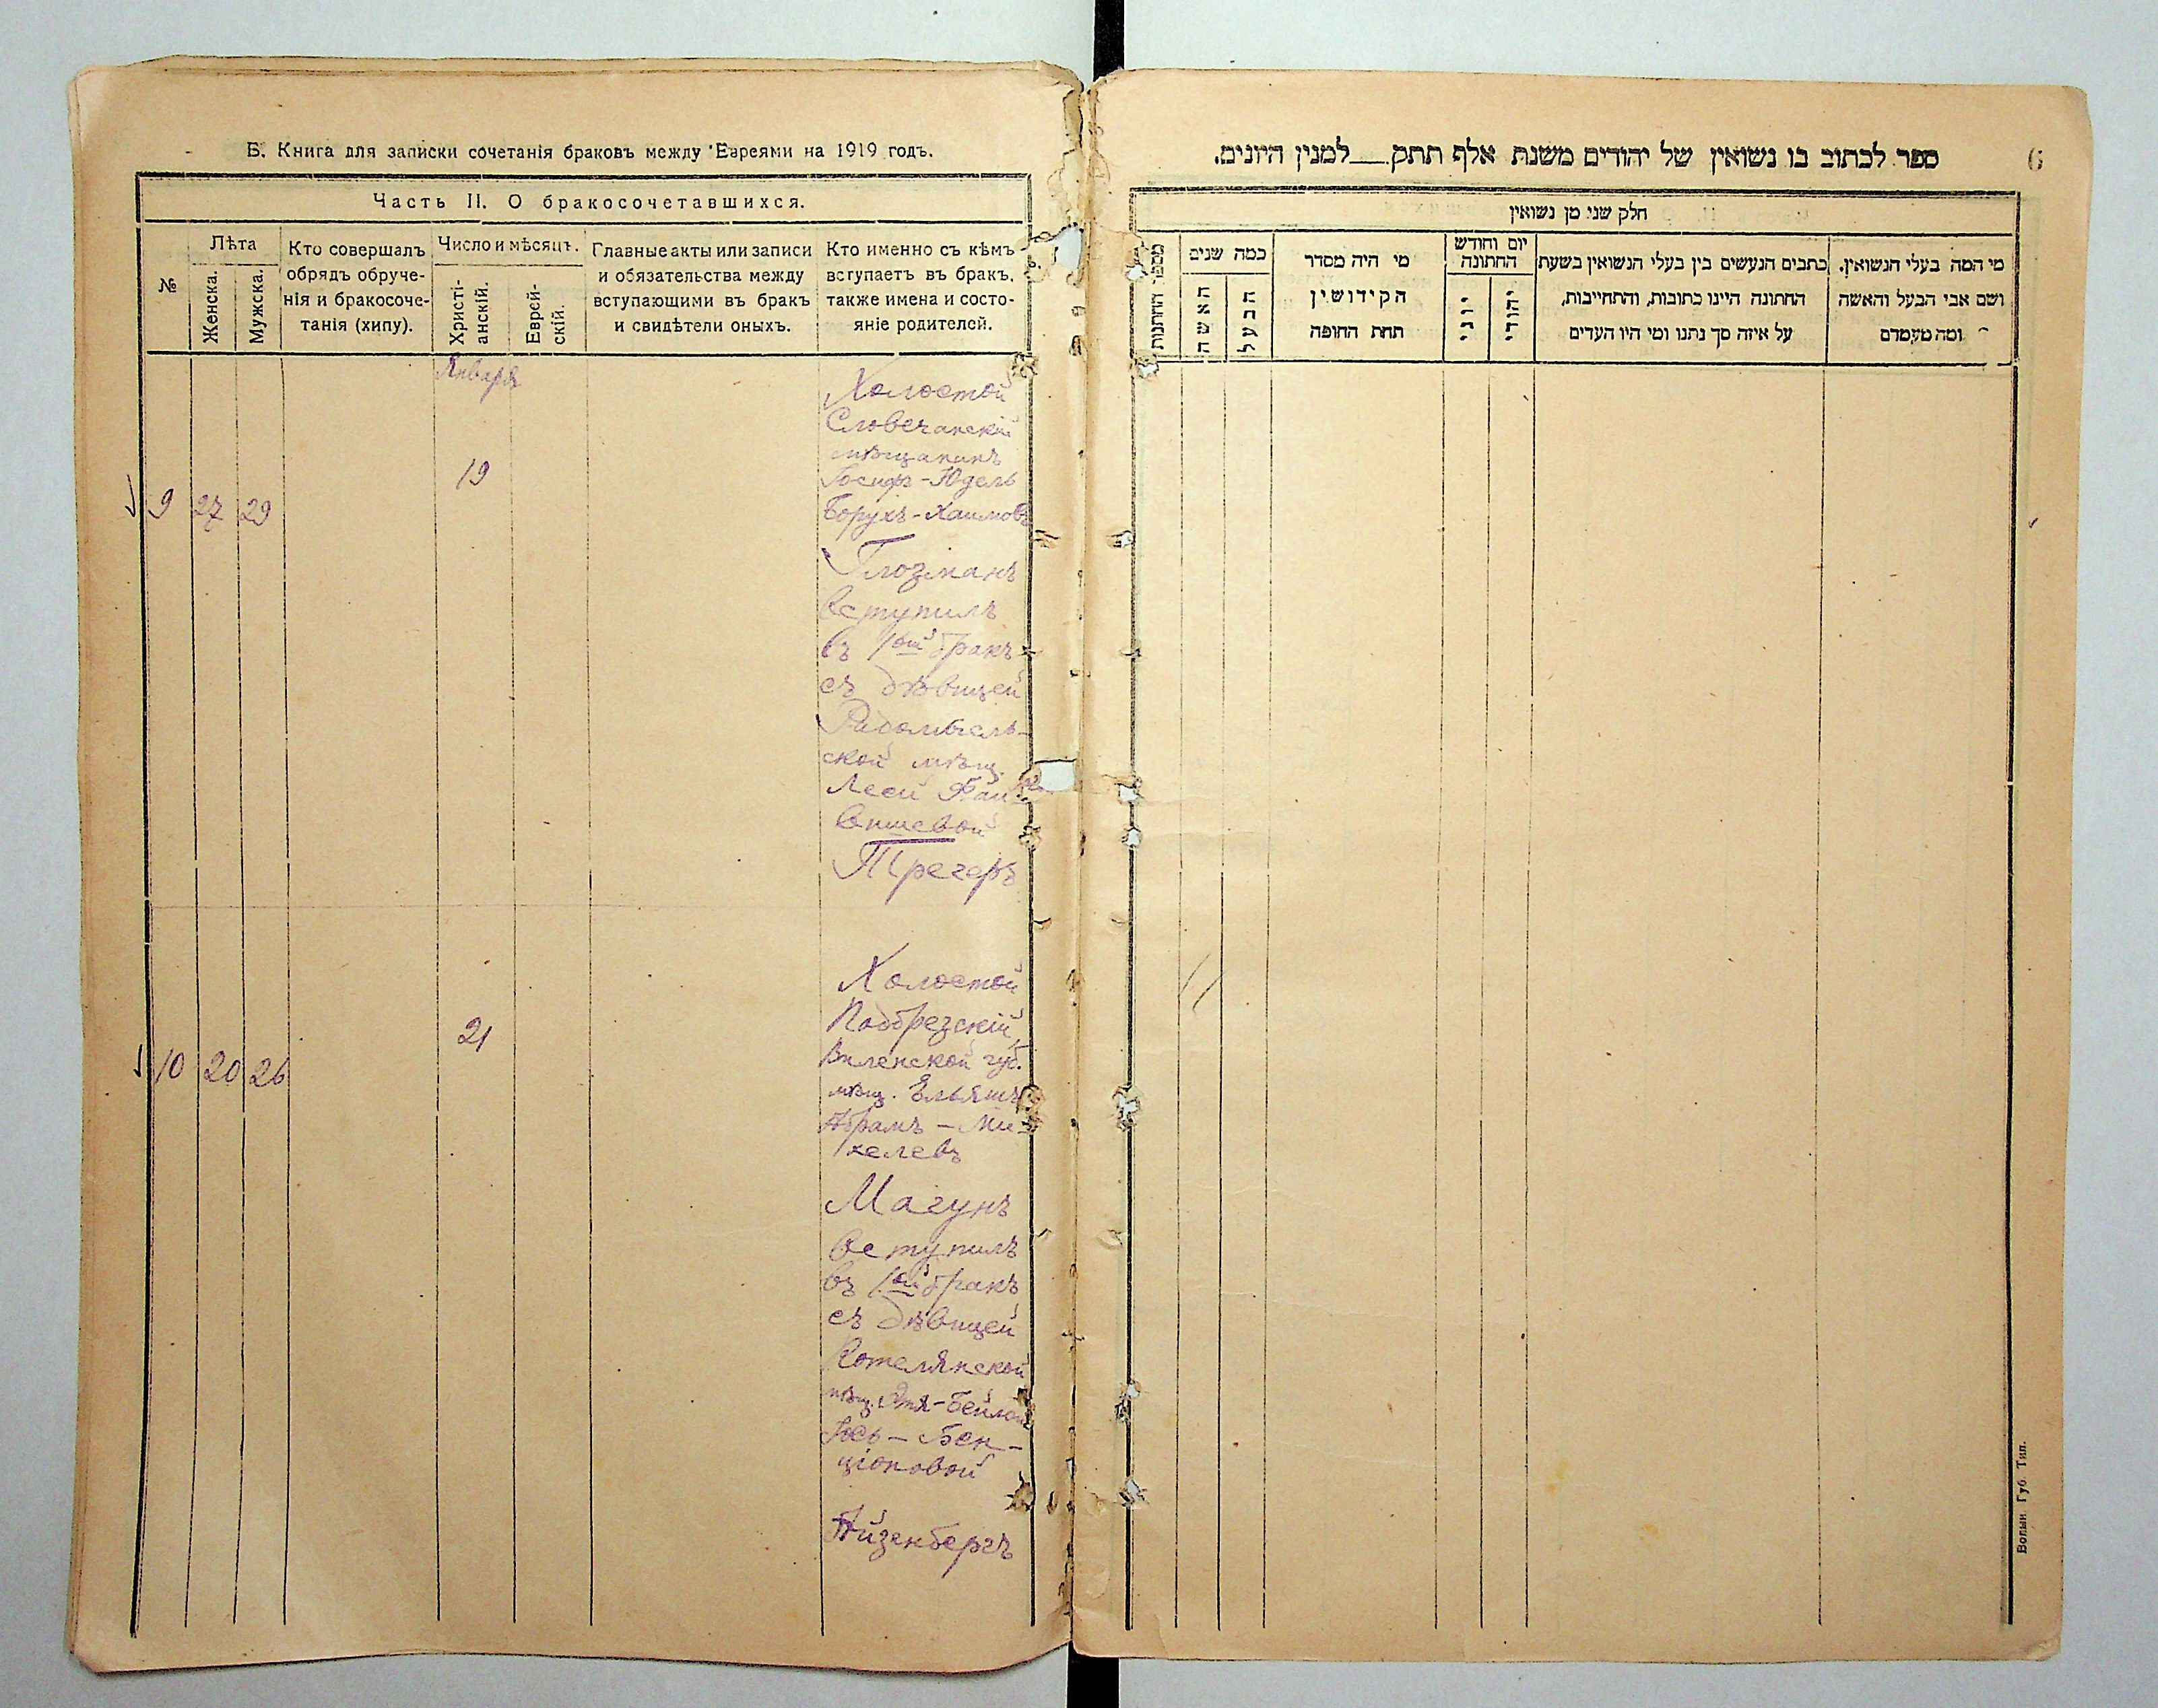 Б. Книга для записки сочетанія браковъ между Евреями на 1919 годъ.
Часть II. О бракосочетавшихся.
№
Лѣта
Женска.
Мужска.
Кто совершалъ
обрядъ обруче-
нія и бракосоче-
танія (хипу).
Число и мѣсяцъ.
Христі-
анскій.
Еврей-
скій.
Главные акты или записи
и обязательства между
вступающими въ бракъ
и свидѣтели оныхъ.
Кто именно съ кѣмъ
вступаетъ въ бракъ,
также имена и состо-
яніе родителей.
Января
9 27 29
19
Холостой
Словечанскій
мѣщанинъ
Іосифъ-Юдель
Борухъ-Хаимовъ
Глозманъ
вступилъ
въ 1ой бракъ
съ дѣвицей
Радомысль-
ской мѣщ.
Леей Фай-
вишевой
Трегеръ
10 20 26
21
Холостой
Подбрезскій,
Виленской губ.
мѣщ. Ельяшъ
Абрамъ-Ми-
хелевъ
Магунъ
вступилъ
въ 1ой бракъ
съ дѣвицей
Котелянской
мѣщ. Этя-Бейлой
Бен-
ціоновой
Айзенбергъ
ספר לכתוב בו נשואין של יהודים משנת אלף תתק___למנין היונים.
6
חלק שני מן נשואין
מספר החתונות
כמה שנים
האשה
הבעל
מי היה מסדר
הקידושין
תחת החופה
יום וחודש
החתונה
יוני
יהודי
כתבים הנעשים בין בעלי הנשואין בשעת
החתונה היינו כתובות, והתחייבות,
על איזה סך נתנו ומי היו העדים
מי המה בעלי הנשואין.
ושם אבי הבעל והאשה
ומה מעמדם
Волын. Губ. Тип.